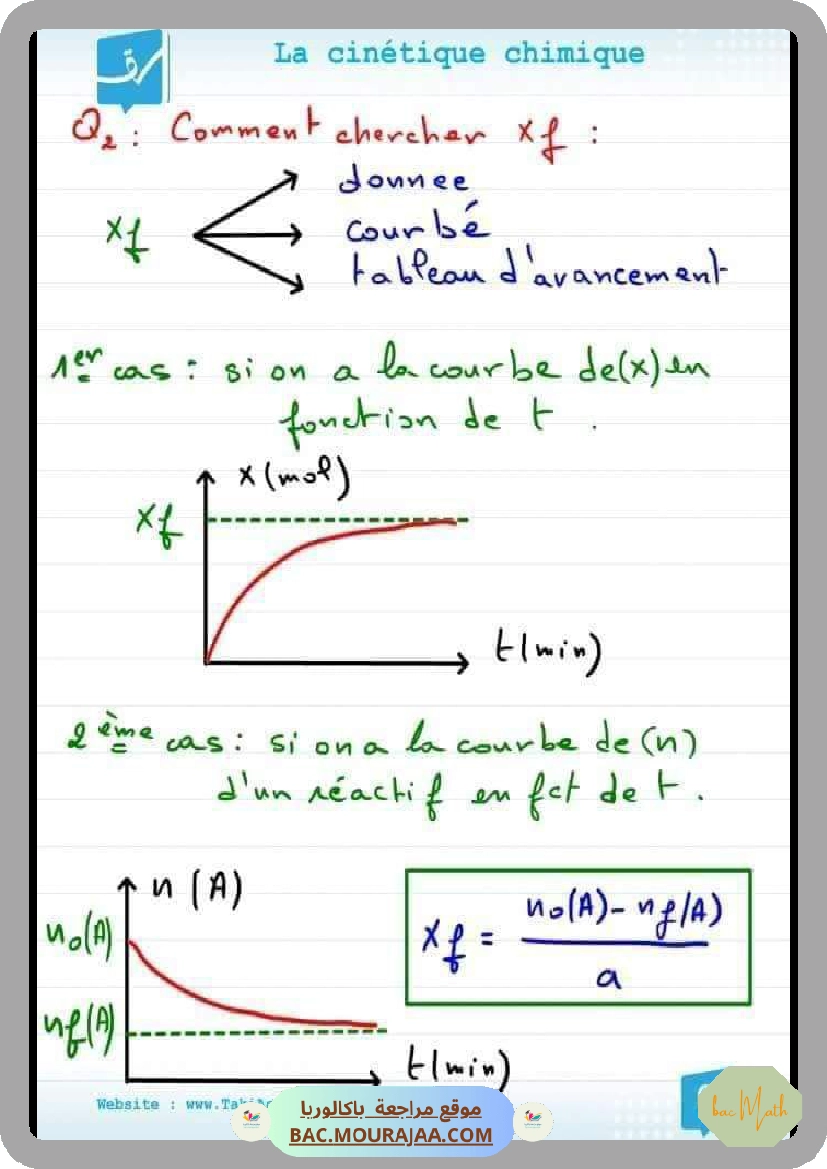 La cinétique chimique
Q₂ : Comment chercher xf :
donnee
xf
courbé
tableau d'avancement
1er cas : si on a la courbe de(x) en
fonction de t .
x (mol)
xf
t(min)
2ème cas : si on a la courbe de (n)
d'un réactif en fct de t .
n (A)
n₀(A)
nf(A)
t(min)
xf = n₀(A) - nf(A) / a
Website : www.
موقع مراجعة باكالوريا
BAC.MOURAJAA.COM
bac Math